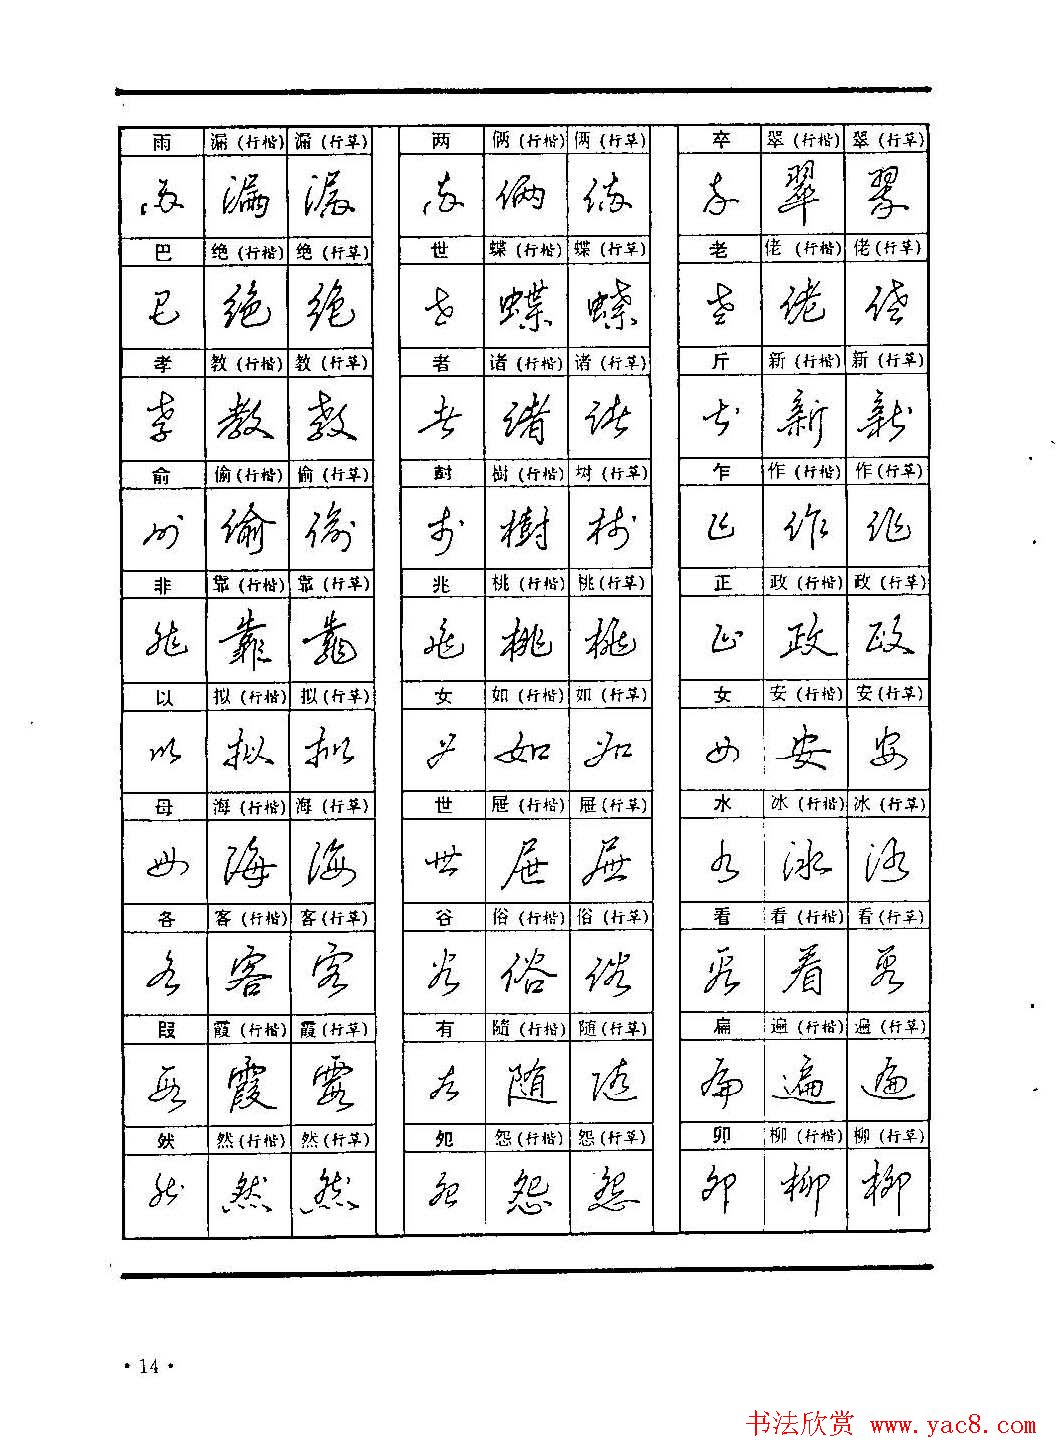 雨 漏(行楷) 漏(行草) 两 俩(行楷) 俩(行草) 卒 翠(行楷) 翠(行草)
雨 漏 漏 两 俩 俩 卒 翠 翠
巴 绝(行楷) 绝(行草) 世 蝶(行楷) 蝶(行草) 老 佬(行楷) 佬(行草)
巴 绝 绝 世 蝶 蝶 老 佬 佬
孝 教(行楷) 教(行草) 者 诸(行楷) 诸(行草) 斤 新(行楷) 新(行草)
孝 教 教 者 诸 诸 斤 新 新
俞 偷(行楷) 偷(行草) 尌 樹(行楷) 树(行草) 乍 作(行楷) 作(行草)
俞 偷 偷 尌 樹 树 乍 作 作
非 靠(行楷) 靠(行草) 兆 桃(行楷) 桃(行草) 正 政(行楷) 政(行草)
非 靠 靠 兆 桃 桃 正 政 政
以 拟(行楷) 拟(行草) 女 如(行楷) 如(行草) 女 安(行楷) 安(行草)
以 拟 拟 女 如 如 女 安 安
母 海(行楷) 海(行草) 世 屉(行楷) 屉(行草) 水 冰(行楷) 冰(行草)
母 海 海 世 屉 屉 水 冰 冰
各 客(行楷) 客(行草) 谷 俗(行楷) 俗(行草) 看 看(行楷) 看(行草)
各 客 客 谷 俗 俗 看 看 看
叚 霞(行楷) 霞(行草) 有 随(行楷) 随(行草) 扁 遍(行楷) 遍(行草)
叚 霞 霞 有 随 随 扁 遍 遍
肰 然(行楷) 然(行草) 夗 怨(行楷) 怨(行草) 卯 柳(行楷) 柳(行草)
肰 然 然 夗 怨 怨 卯 柳 柳
·14·
书法欣赏 www.yac8.com